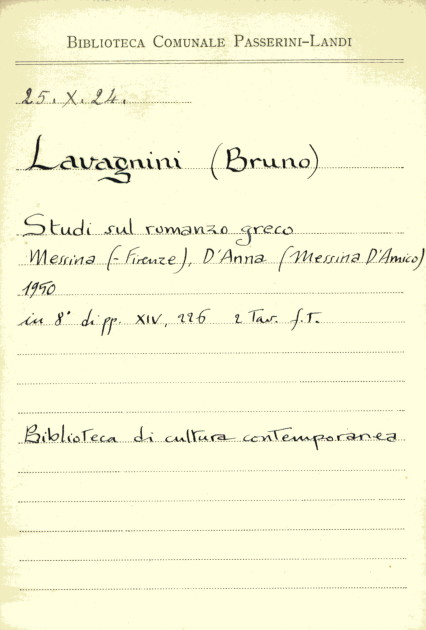 BIBLIOTECA COMUNALE PASSERINI-LANDI
25. X. 24.
Lavagnini (Bruno)
Studi sul romanzo greco
Messina (-Firenze), D'Anna (Messina D'Amico)
1950
in 8° di pp. XIV, 226 2 Tav. f.T.
Biblioteca di cultura contemporanea